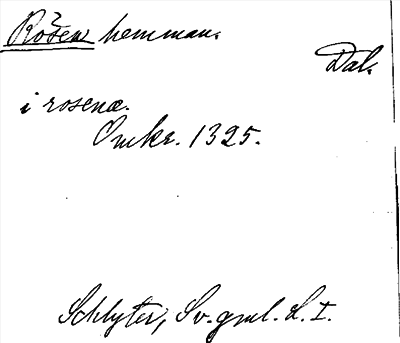 Rosen hemman.
Dal.
i rosenæ.
Omkr. 1325.
Schlyter, Sv. gml. L. I.